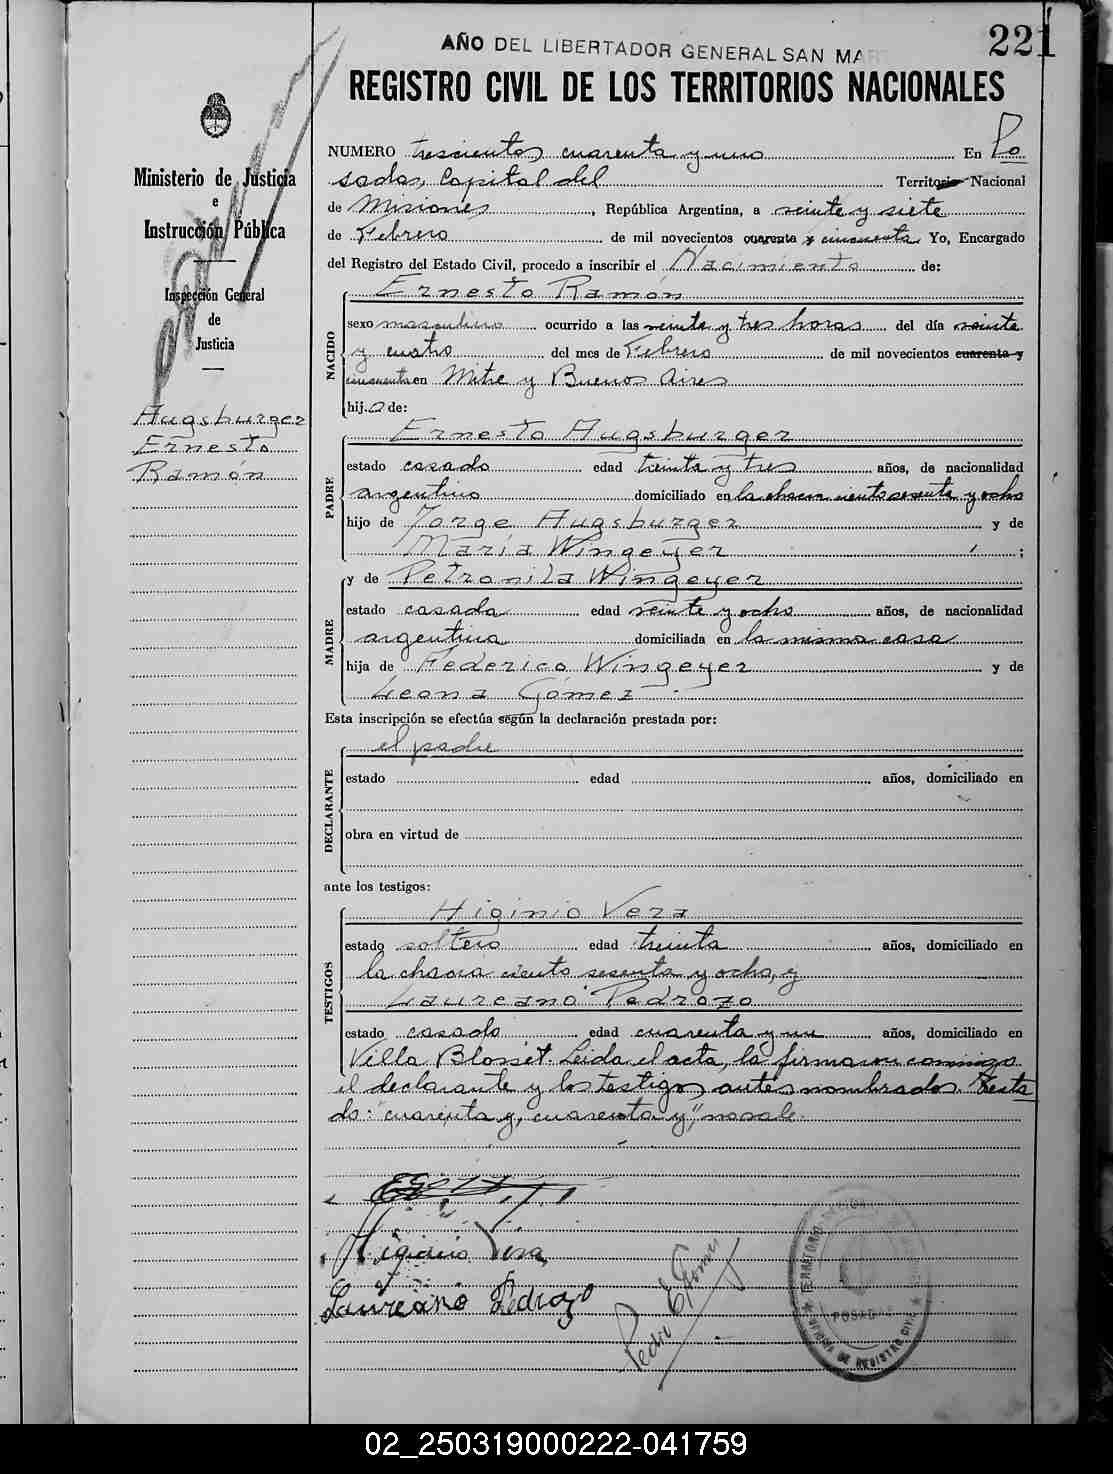 221
AÑO DEL LIBERTADOR GENERAL SAN MAR
REGISTRO CIVIL DE LOS TERRITORIOS NACIONALES
Ministerio de Justicia
e
Instrucción Pública
Inspección General
de
Justicia
Augsburger
Ernesto
Ramón
NUMERO trescientos cuarenta y uno En Po
sadas, Capital del Territorio Nacional
de Misiones, República Argentina, a veinte y siete
de Febrero de mil novecientos cuarenta y cincuenta Yo, Encargado
del Registro del Estado Civil, procedo a inscribir el Nacimiento de:
NACIDO
Ernesto Ramón
sexo masculino ocurrido a las veinte y tres horas del día veinte
y cuatro del mes de Febrero de mil novecientos cuarenta y
cincuenta en Mitre y Buenos Aires
hij.o de:
PADRE
Ernesto Augsburger
estado casado edad treinta y tres años, de nacionalidad
argentino domiciliado en la chacra ciento sesenta y ocho
hijo de Jorge Augsburger y de
María Wingeyer ;
MADRE
y de Petronila Wingeyer
estado casada edad veinte y ocho años, de nacionalidad
argentina domiciliada en la misma casa
hija de Federico Wingeyer y de
Leona Gómez
Esta inscripción se efectúa según la declaración prestada por:
DECLARANTE
el padre
estado edad años, domiciliado en
obra en virtud de
ante los testigos:
TESTIGOS
Higinio Vera
estado soltero edad treinta años, domiciliado en
la chacra ciento sesenta y ocho, y
Laureano Pedrozo
estado casado edad cuarenta y un años, domiciliado en
Villa Blosset. Leida el acta, la firmaron conmigo
el declarante y los testigos antes nombrados. Testa
do: "cuarenta y, cuarenta y", no vale.
Higinio Vera
Laureano Pedrozo
Pedro E. Gomez
TERRITORIO
POSADAS
OFICINA DE REGISTRO CIVIL
02_250319000222-041759